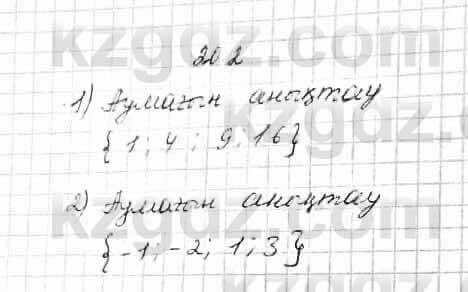 kzgdz.com
202
1) Аумағын анықтау
{1; 4; 9; 16}
2) Аумағын анықтау
{-1; -2; 1; 3}